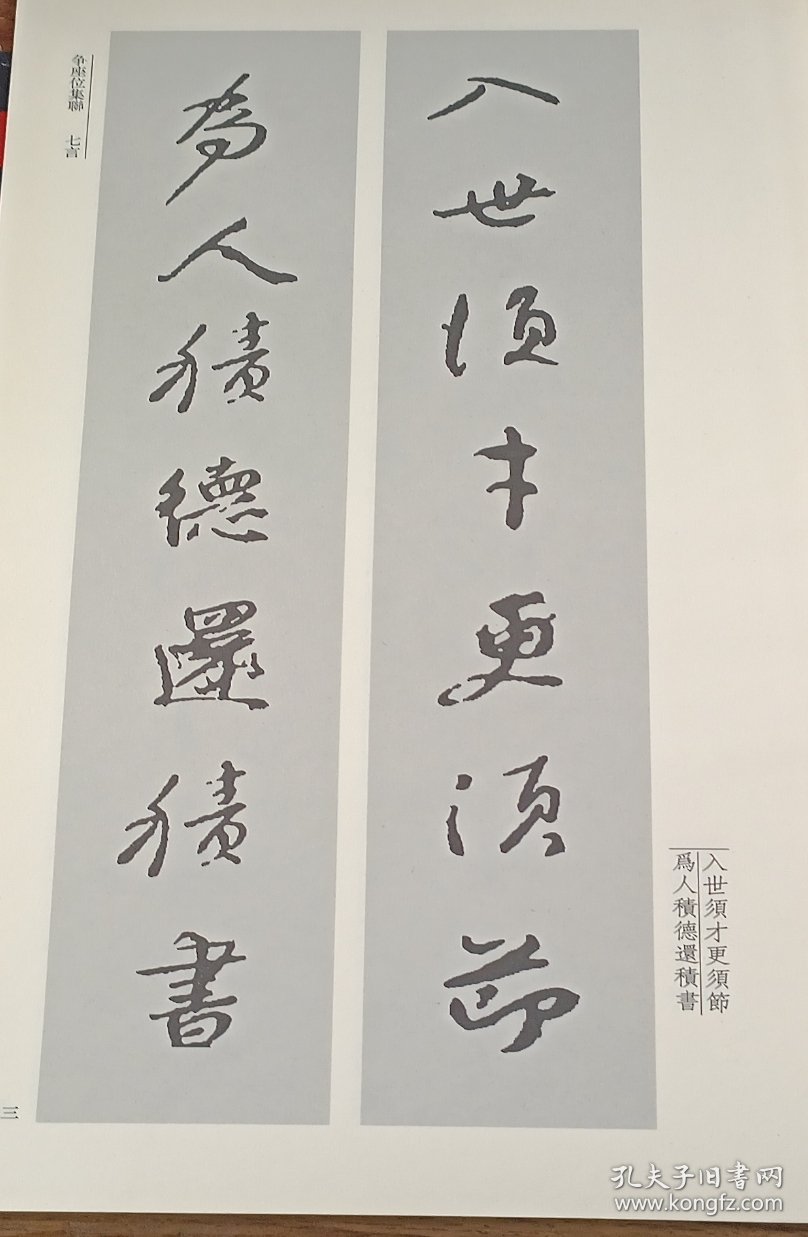 入世須才更須節
為人積德還積書
入世須才更須節
爲人積德還積書
争座位集聯 七言
三
孔夫子旧書网
www.kongfz.com